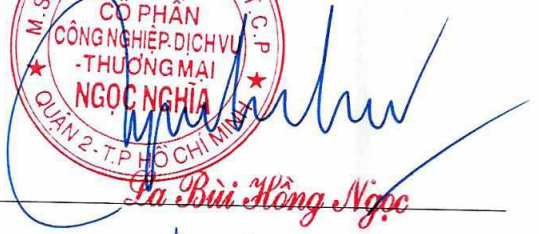 M.S
T.C.P
CỔ PHẦN
CÔNG NGHIỆP-DỊCH VỤ
-THƯƠNG MẠI
NGỌC NGHĨA
QUẬN 2-T.P HỒ CHÍ MINH
La Bùi Hồng Ngọc